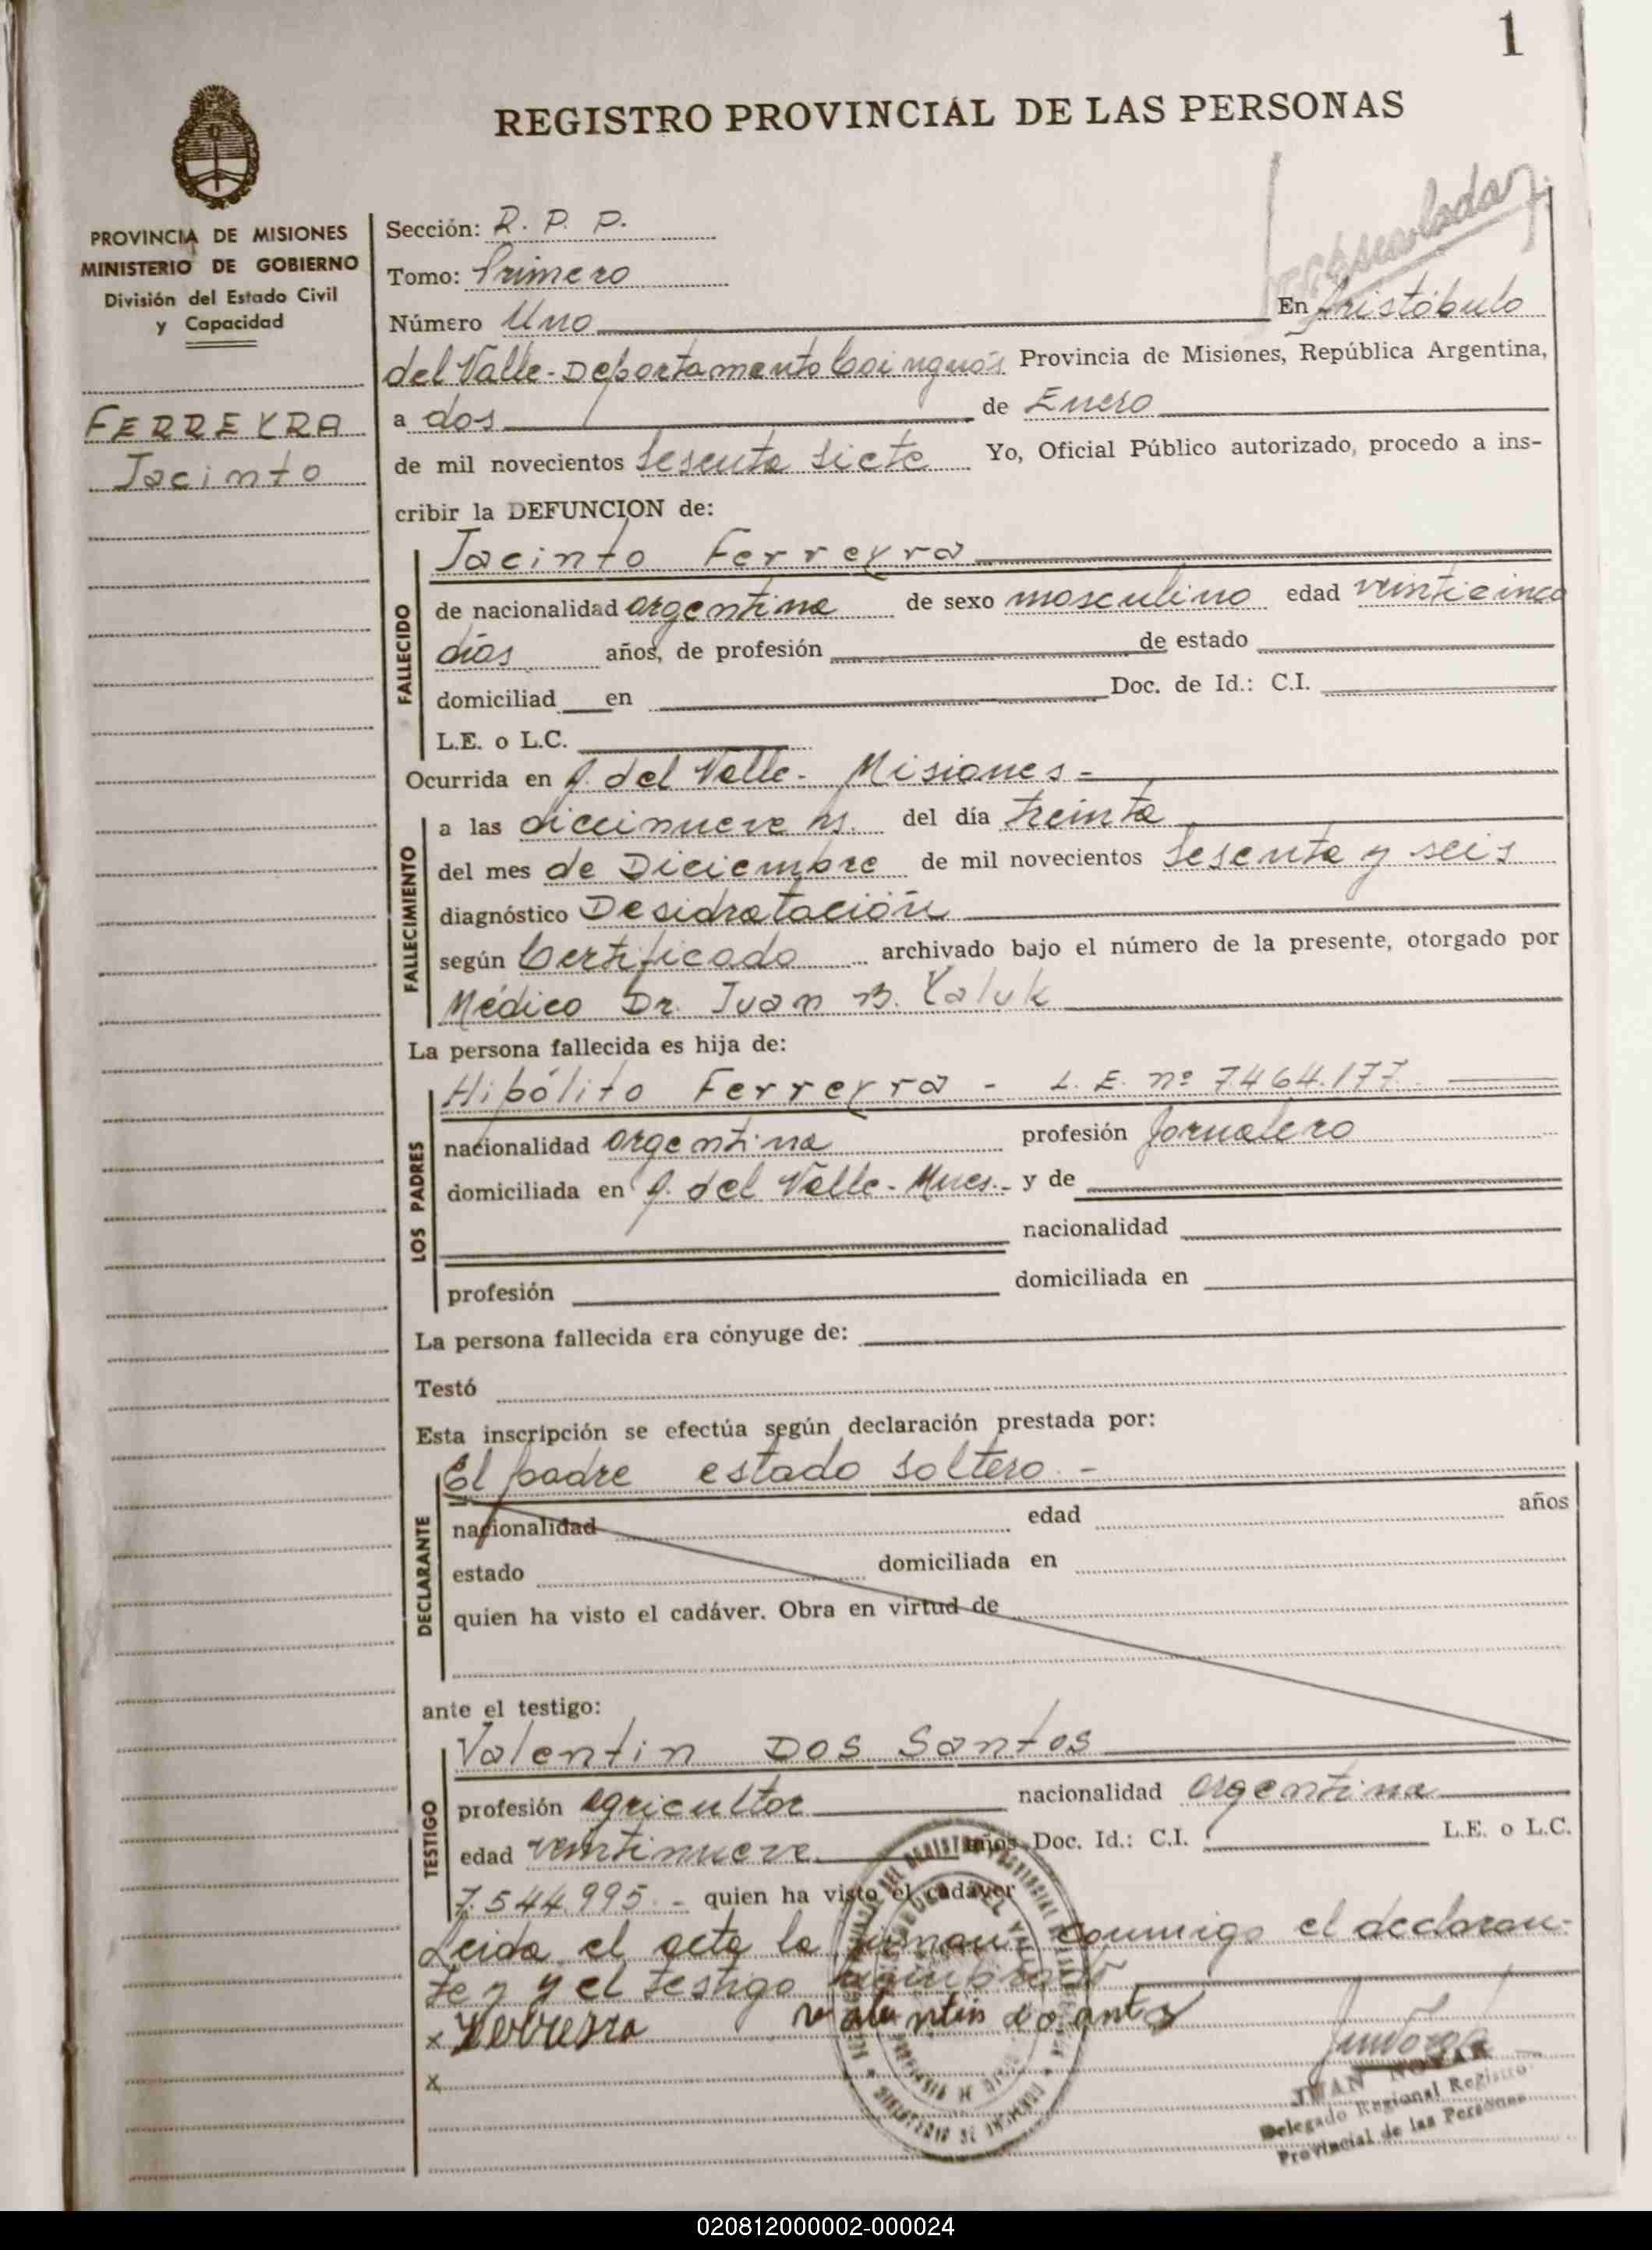 1
REGISTRO PROVINCIAL DE LAS PERSONAS
PROVINCIA DE MISIONES
MINISTERIO DE GOBIERNO
División del Estado Civil
y Capacidad
FERREYRA
Jacinto
Sección: R. P. P.
Tomo: Primero
Número Uno En Aristóbulo
del Valle - Departamento Cainguás Provincia de Misiones, República Argentina,
a dos de Enero
de mil novecientos Sesenta Siete Yo, Oficial Público autorizado, procedo a ins-
cribir la DEFUNCION de:
FALLECIDO
Jacinto Ferreyra
de nacionalidad argentina de sexo masculino edad veinticinco
días años, de profesión de estado
domiciliad en Doc. de Id.: C.I.
L.E. o L.C.
Ocurrida en A. del Valle - Misiones -
FALLECIMIENTO
a las diecinueve hs. del día treinta
del mes de Diciembre de mil novecientos Sesenta y seis
diagnóstico Desidratación
según Certificado archivado bajo el número de la presente, otorgado por
Médico Dr. Juan B. Yaluk
La persona fallecida es hija de:
LOS PADRES
Hipólito Ferreyra - L. E. nº 7.464.177.
nacionalidad argentina profesión Jornalero
domiciliada en A. del Valle - Mnes. - y de
nacionalidad
profesión domiciliada en
La persona fallecida era cónyuge de:
Testó
Esta inscripción se efectúa según declaración prestada por:
DECLARANTE
El padre estado soltero. -
nacionalidad edad años
estado domiciliada en
quien ha visto el cadáver. Obra en virtud de
ante el testigo:
TESTIGO
Valentin Dos Santos
profesión agricultor nacionalidad argentina
edad veintinueve años Doc. Id.: C.I. L.E. o L.C.
7.544.995 - quien ha visto el cadáver
Leida el acta la firman conmigo el declaran-
te y y el testigo nombrado
x Ferreyra valentin do santo
x
JUAN
Delegado Regional Registro
Provincial de las Personas
020812000002-000024